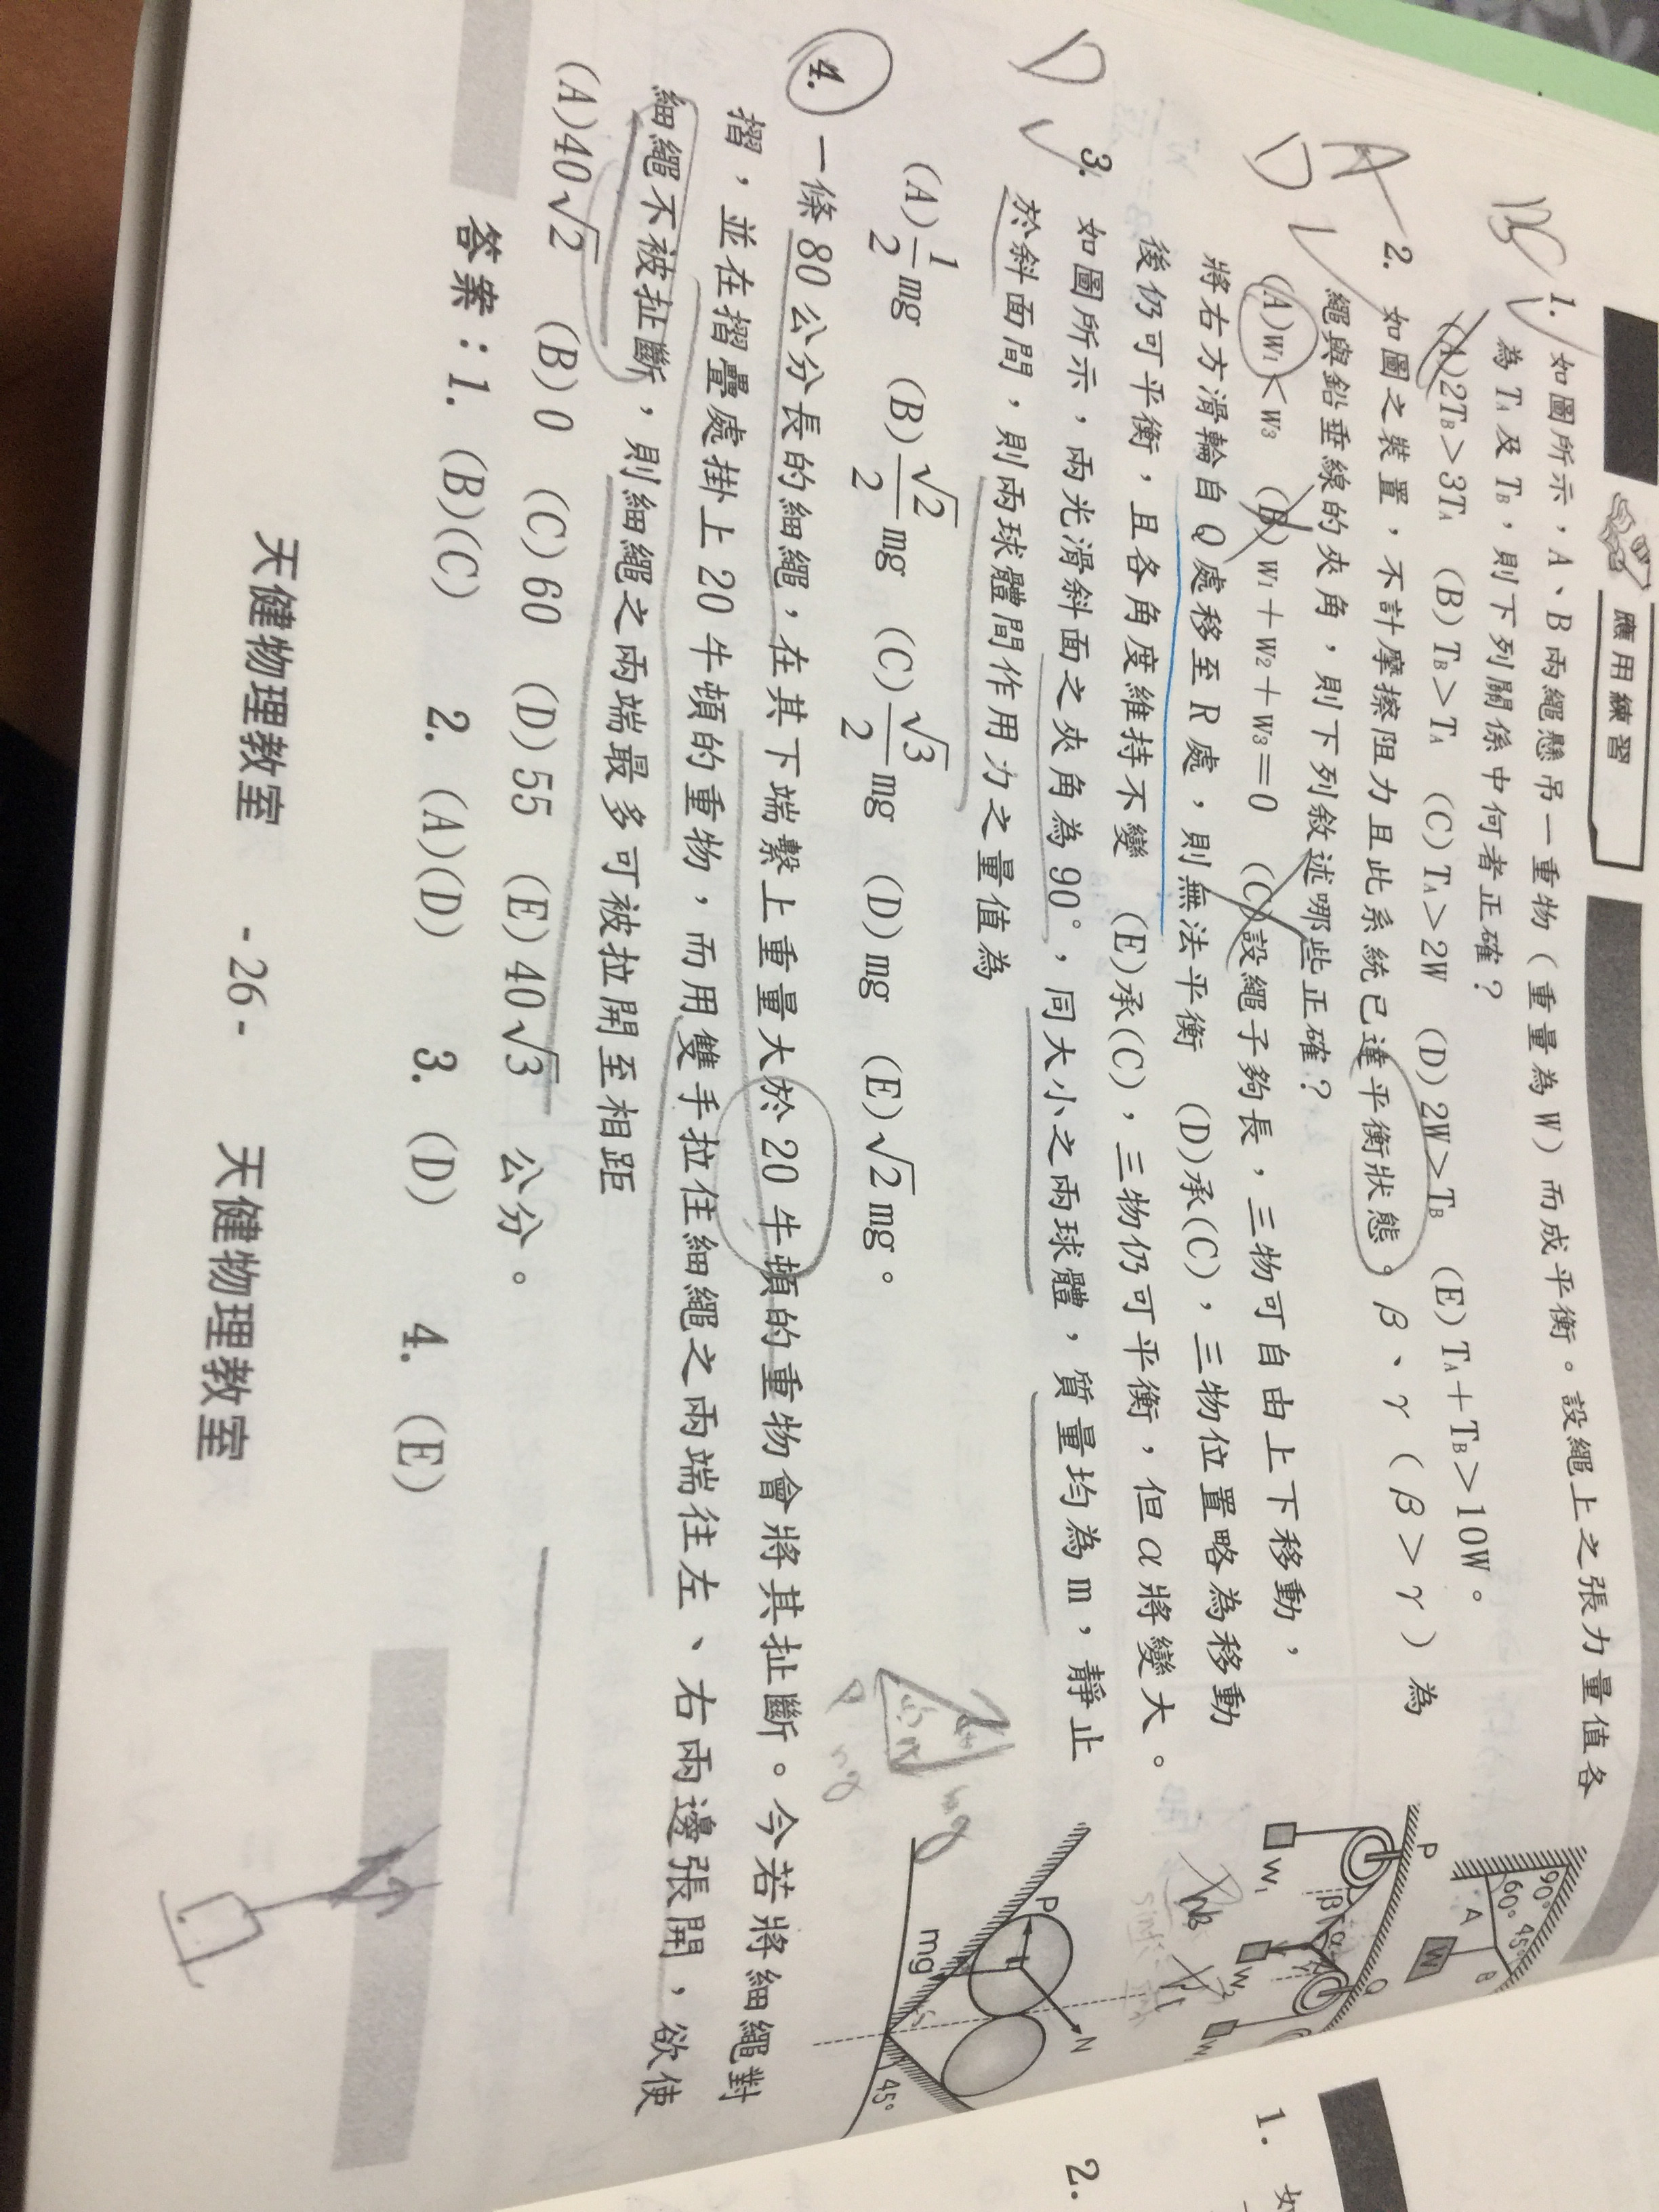 應用練習
BC
1. 如圖所示，A、B兩繩懸吊一重物（重量為W）而成平衡。設繩上之張力量值各
為 TA 及 TB，則下列關係中何者正確？
(A)2TB＞3TA (B)TB＞TA (C)TA＞2W (D)2W＞TB (E)TA＋TB＞10W。
90° 60° 45° A B W
A
D
2. 如圖之裝置，不計摩擦阻力且此系統已達平衡狀態。β、γ（β＞γ）為
繩與鉛垂線的夾角，則下列敘述哪些正確？
(A)W1＜W3 (B)W1＋W2＋W3＝0 (C)設繩子夠長，三物可自由上下移動，
將右方滑輪自Q處移至R處，則無法平衡 (D)承(C)，三物位置略為移動
後仍可平衡，且各角度維持不變 (E)承(C)，三物仍可平衡，但α將變大。
P Q β α W1 W2
D
3. 如圖所示，兩光滑斜面之夾角為90°，同大小之兩球體，質量均為m，靜止
於斜面間，則兩球體間作用力之量值為
(A)1/2 mg (B)√2/2 mg (C)√3/2 mg (D)mg (E)√2 mg。
P N mg 45°
4. 一條80公分長的細繩，在其下端繫上重量大於20牛頓的重物會將其扯斷。今若將細繩對
摺，並在摺疊處掛上20牛頓的重物，而用雙手拉住細繩之兩端往左、右兩邊張開，欲使
細繩不被扯斷，則細繩之兩端最多可被拉開至相距
(A)40√2 (B)0 (C)60 (D)55 (E)40√3 公分。
答案：1. (B)(C) 2. (A)(D) 3. (D) 4. (E)
天健物理教室 -26- 天健物理教室
1. 如
2.